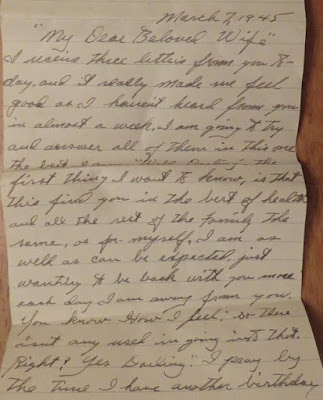 March 7, 1945
"My Dear Beloved Wife"
I receive three letters from you to-
day, and it really made me feel
good as I haven't heard from you
in almost a week. I am going to try
and answer all of them in this one
the best I can "Well Darling", the
first thing I want to know, is that
this find you in the best of health
and all the rest of the family the
same, as for myself, I am as
well as can be expected, just
wanting to be back with you more
each day I am away from you.
You know How I feel, so there
isn't any used in going into that.
Right? Yes Darling". I pray by
the time I have another birthday